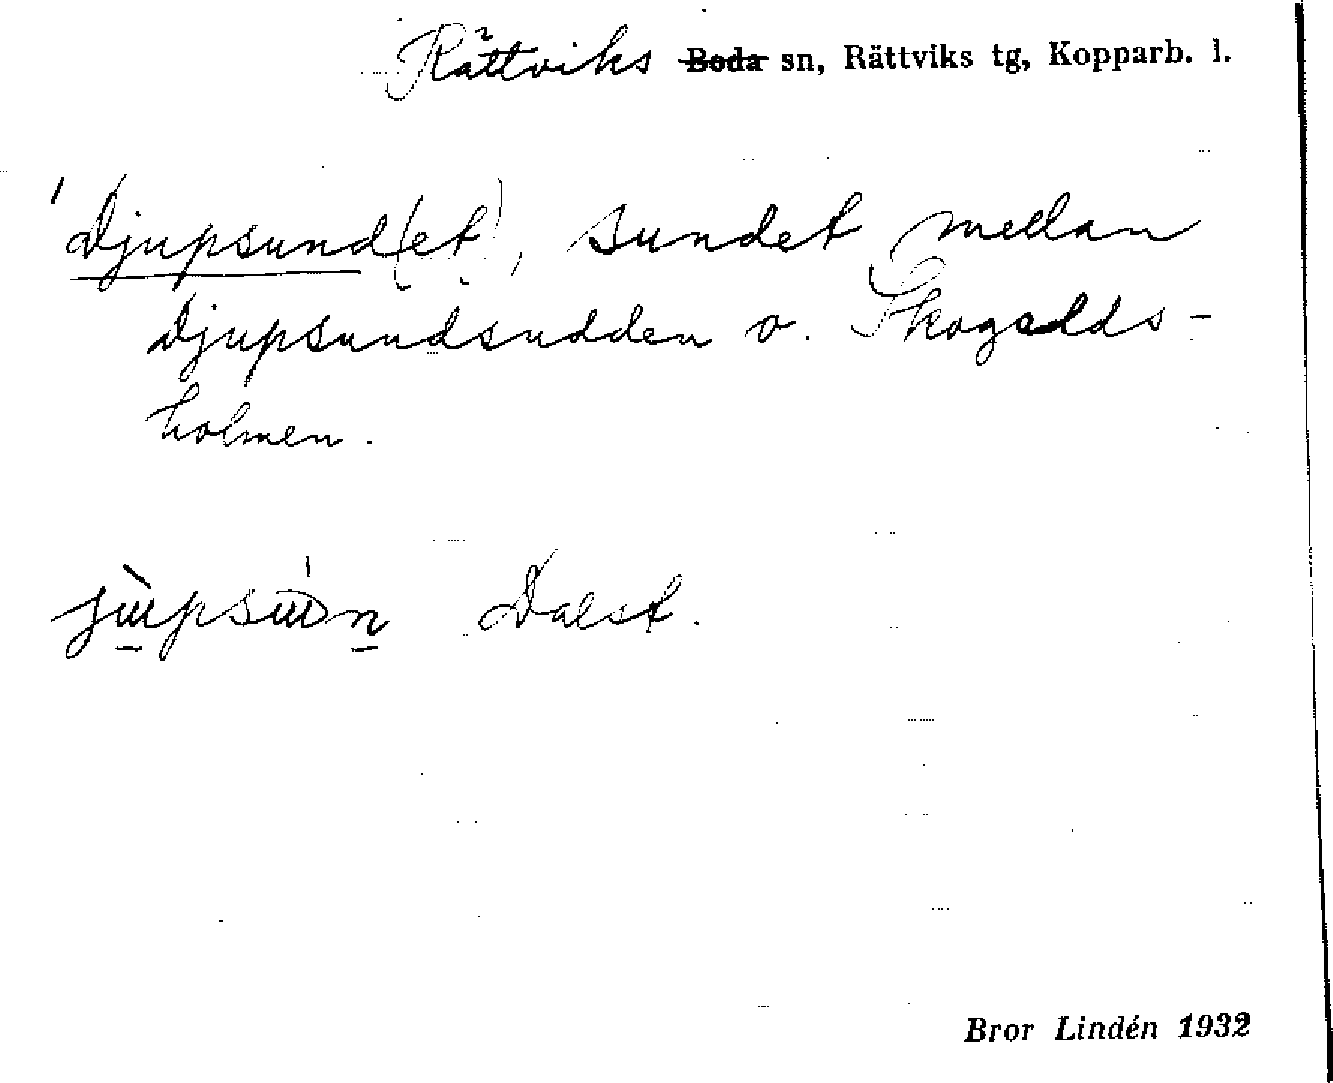 Rättviks Boda sn, Rättviks tg, Kopparb. l.
Djupsund(et), sundet mellan
Djupsundsudden o. Skogalds-
holmen.
Dalst.
Bror Lindén 1932